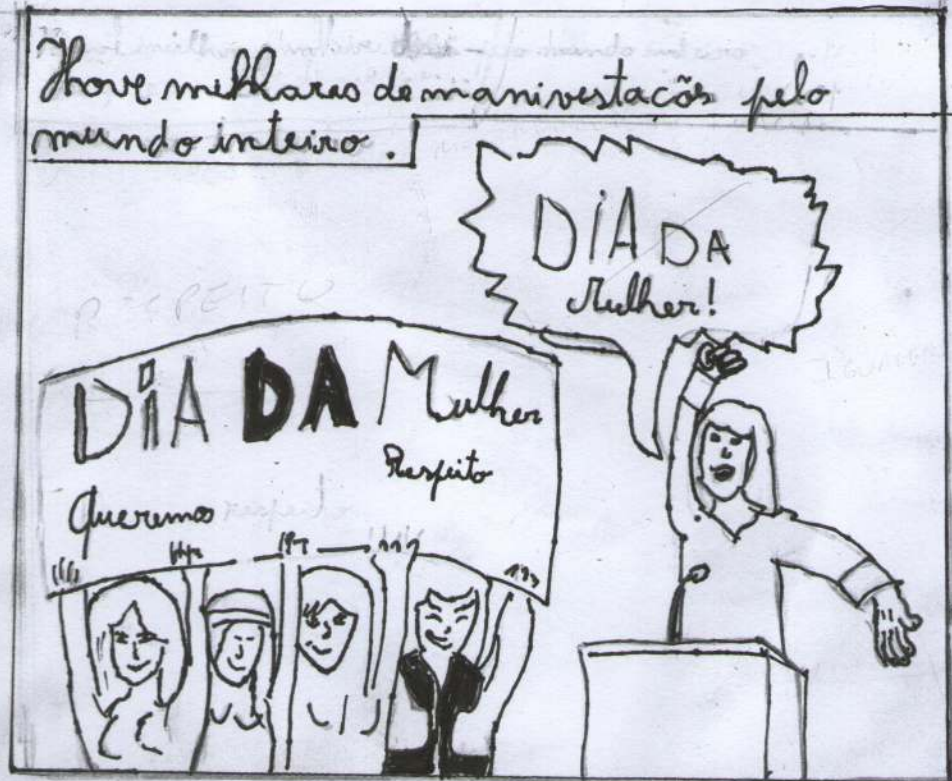 Hove melhares de manivestacõs pelo
mundo inteiro.
DiA DA
Mulher!
RESPEITO
DiA DA Mulher
Respeito
Queremos